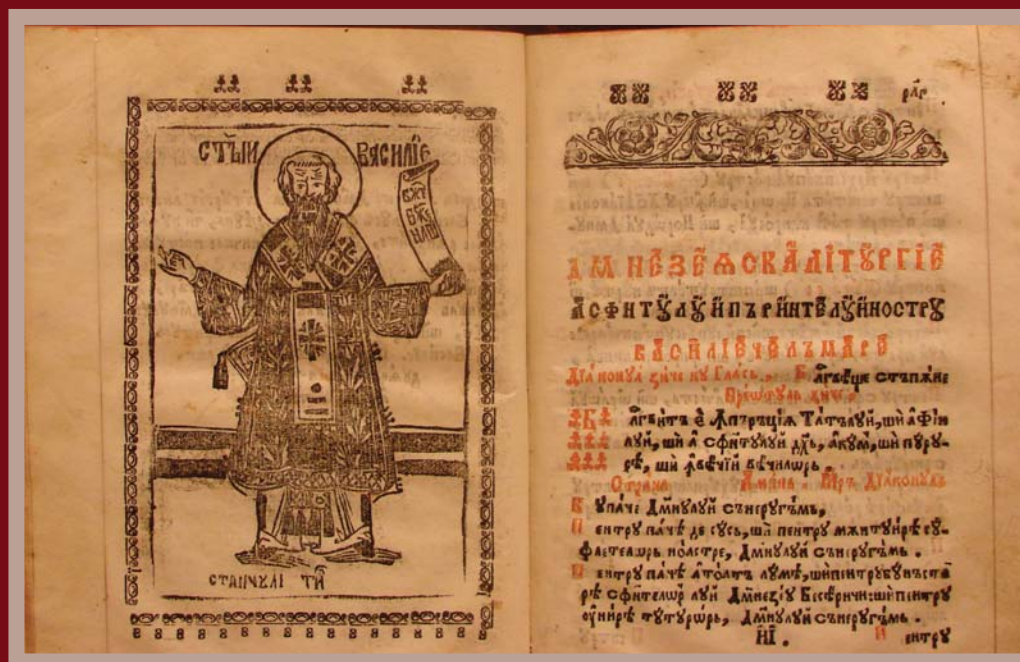 СТ҃ЫИ ВАСИЛІЕ
НАШ
СТАНЧУЛ
ДМНЕЗЕѪСКА ЛІТꙊРГІЕ
А СФНТꙊЛꙊЙ ПЪРИНТЕЛꙊЙ НОСТРꙊ
ВАСИЛІЕ ЧЕЛЪ МАРЕ
ДІАКОНУЛ ЗИЧЕ КУ ГЛАСЬ. Б лгвѣще стъпѫне
Преѡтуль зиче.
Б лгвитъ е ꙟпъръціѧ Татълуй, ши а Фію
луй, ши а сфнтулуй дх҃ь, акум, ши пуру-
рѣ, ши ꙟ вѣчїй вѣчилѡрь.
Страна Аминь. Діаконуль
К у паче Дмнулуй сънеругъмь,
П ентру пачѣ де сусь, ши пентру мѫнтуирѣ су-
флетелѡрь ноастре, Дмнулуй сънеругъмь.
П ентру пачѣ а тоатъ лумѣ, ши пентру бунъ ста
рѣ сфнтелѡр луй Дмнезеу Бесѣричи: ши пентру
оунирѣ тутурѡрь, Дмнулуй сънеругъмь.
П ентру